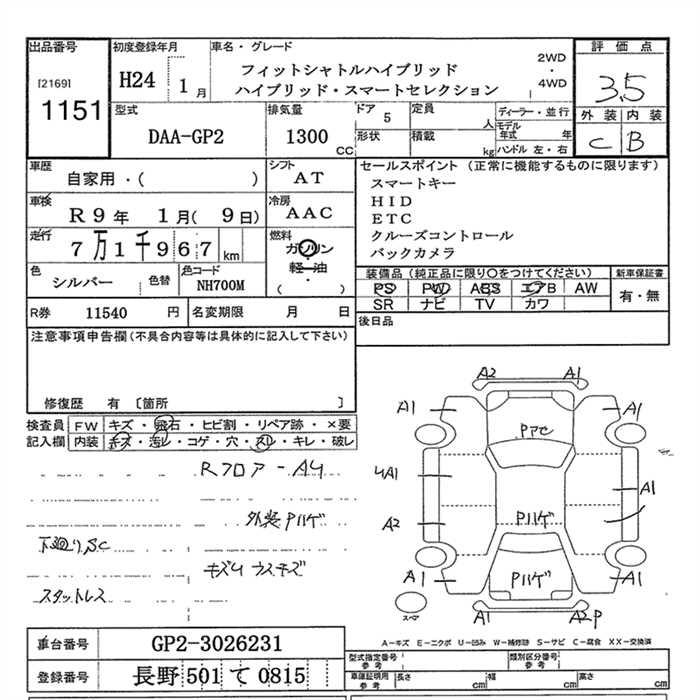 出品番号 初度登録年月 車名・グレード 評価点
[2169] 1151
H24 1月
フィットシャトルハイブリッド 2WD
・
ハイブリッド・スマートセレクション 4WD
3.5
外装 内装
C B
型式 排気量 ドア 定員 ディーラー・並行
DAA-GP2 1300 CC 5 人 モデル年式 年
形状 積載 kg ハンドル 左・右
車歴 シフト セールスポイント (正常に機能するものに限ります)
自家用・( ) AT
スマートキー
車検 冷房 HID
R9年 1月(9日) AAC ETC
走行 燃料 クルーズコントロール
7万1千967km ガソリン バックカメラ
軽・油
・
( )
色 シルバー 色替 色コード NH700M
装備品 (純正品に限り○をつけてください) 新車保証書
PS PW ABS エアB AW 有・無
SR ナビ TV カワ
R券 11540 円 名変期限 月 日
後日品
注意事項申告欄(不具合内容等は具体的に記入して下さい)
修復歴 有 〔箇所 〕
検査員 FW キズ・飛石・ヒビ割・リペア跡・×要
記入欄 内装 キズ・汚レ・コゲ・穴・スレ・キレ・破レ
RフロアーA4
外装Pハゲ
下廻りSC
キズ4 ウスキズ
スタットレス
A2 A1
A1 A1
Pアセ
4A1 A1
A2 Pハゲ
A1 Pハゲ A1
A1 A2P
スペア
A-キズ E-エクボ U-凹み W-補修跡 S-サビ C-腐食 XX-交換済
車台番号 GP2-3026231
登録番号 長野 501 て 0815
型式指定番号 参考 類別区分番号 参考
車庫証明用 参考 長さ cm 幅 cm 高さ cm